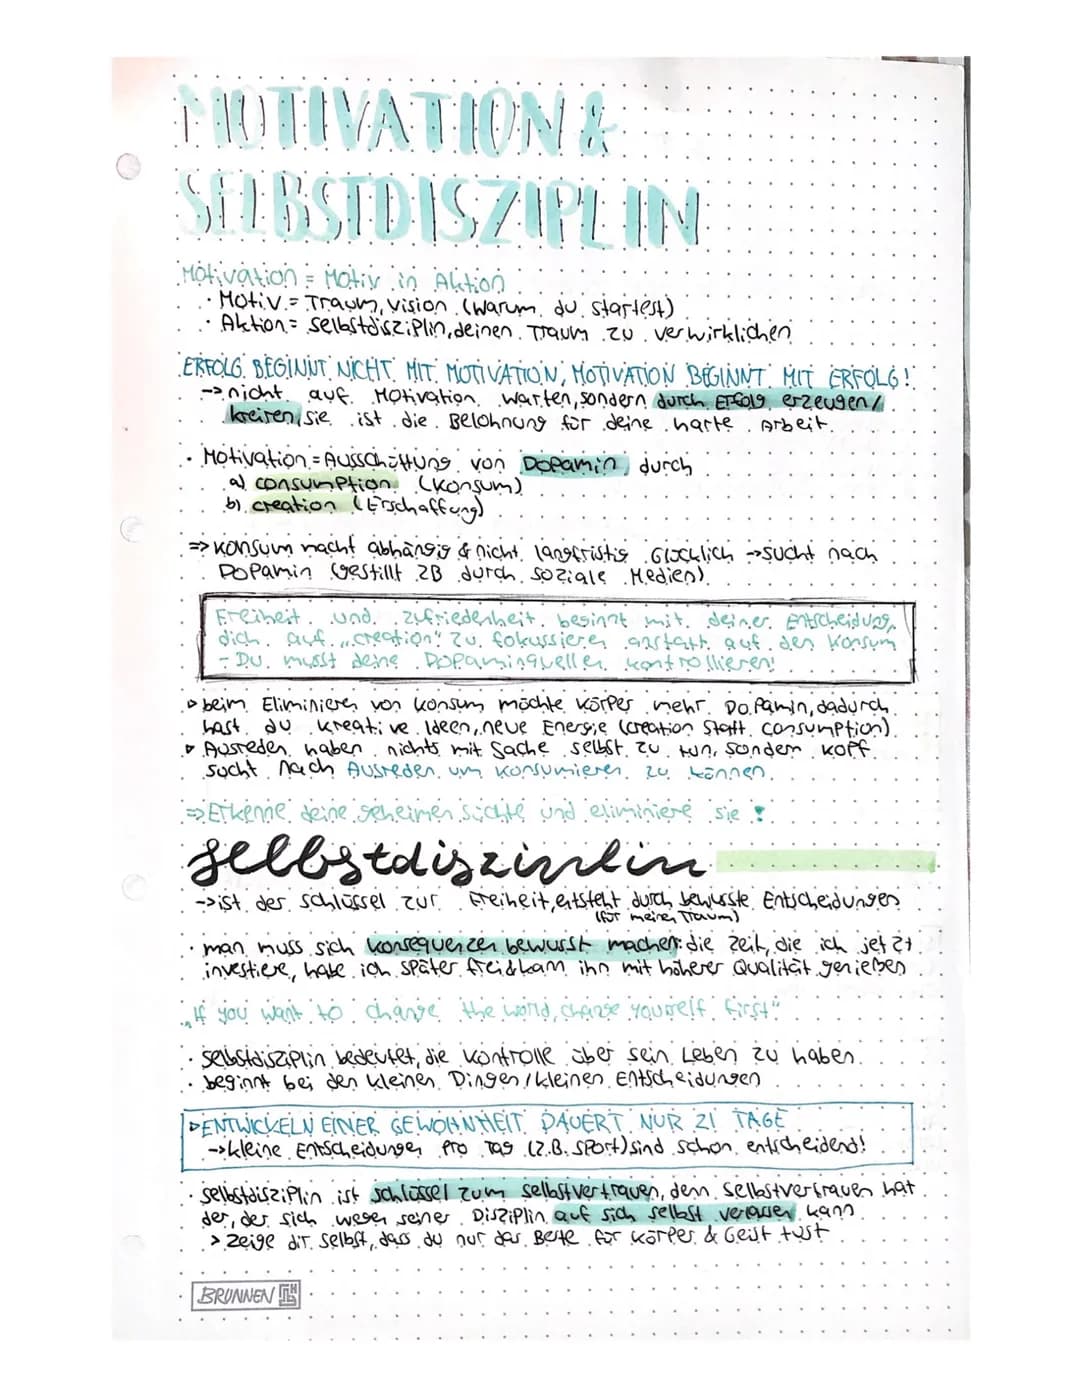 MOTIVATION &
SELBSTDISZIPLIN
Motivation = Motiv in Aktion
· Motiv = Traum, Vision (warum du startest)
· Aktion = Selbstdisziplin, deinen Traum zu verwirklichen
ERFOLG BEGINNT NICHT MIT MOTIVATION, MOTIVATION BEGINNT MIT ERFOLG!
-> nicht auf Motivation warten, sondern durch Erfolg erzeugen/
kreiren, sie ist die Belohnung für deine harte Arbeit.
· Motivation = Ausschüttung von Dopamin durch
a) consumption (Konsum)
b) creation (Erschaffung)
=> Konsum macht abhängig & nicht langfristig glücklich -> sucht nach
Dopamin (gestillt zB durch soziale Medien)
Freiheit und Zufriedenheit beginnt mit deiner Entscheidung,
dich auf „creation“ zu fokussieren anstatt auf den Konsum
- Du musst deine Dopaminquellen kontrollieren!
▹ beim Eliminieren von Konsum möchte Körper mehr Dopamin, dadurch
hast du kreative Ideen, neue Energie (creation statt consumption)
▹ Ausreden haben nichts mit Sache selbst zu tun, sondern Kopf
sucht nach Ausreden um konsumieren zu können.
=> Erkenne deine geheimen Süchte und eliminiere sie!
selbstdisziplin
-> ist der Schlüssel zur Freiheit, entsteht durch bewusste Entscheidungen
(für meinen Traum)
· man muss sich Konsequenzen bewusst machen: die Zeit, die ich jetzt
investiere, habe ich später frei & kann ihn mit höherer Qualität genießen
„If you want to change the world, change yourself first“
· Selbstdisziplin bedeutet, die Kontrolle über sein Leben zu haben
· beginnt bei den kleinen Dingen/kleinen Entscheidungen
▹ ENTWICKELN EINER GEWOHNHEIT DAUERT NUR 21 TAGE
-> kleine Entscheidungen pro Tag (z.B. Sport) sind schon entscheidend!
· Selbstdisziplin ist Schlüssel zum Selbstvertrauen, denn Selbstvertrauen hat
der, der sich wegen seiner Disziplin auf sich selbst verlassen kann
> zeige dir selbst, dass du nur das Beste für Körper & Geist tust
BRUNNEN